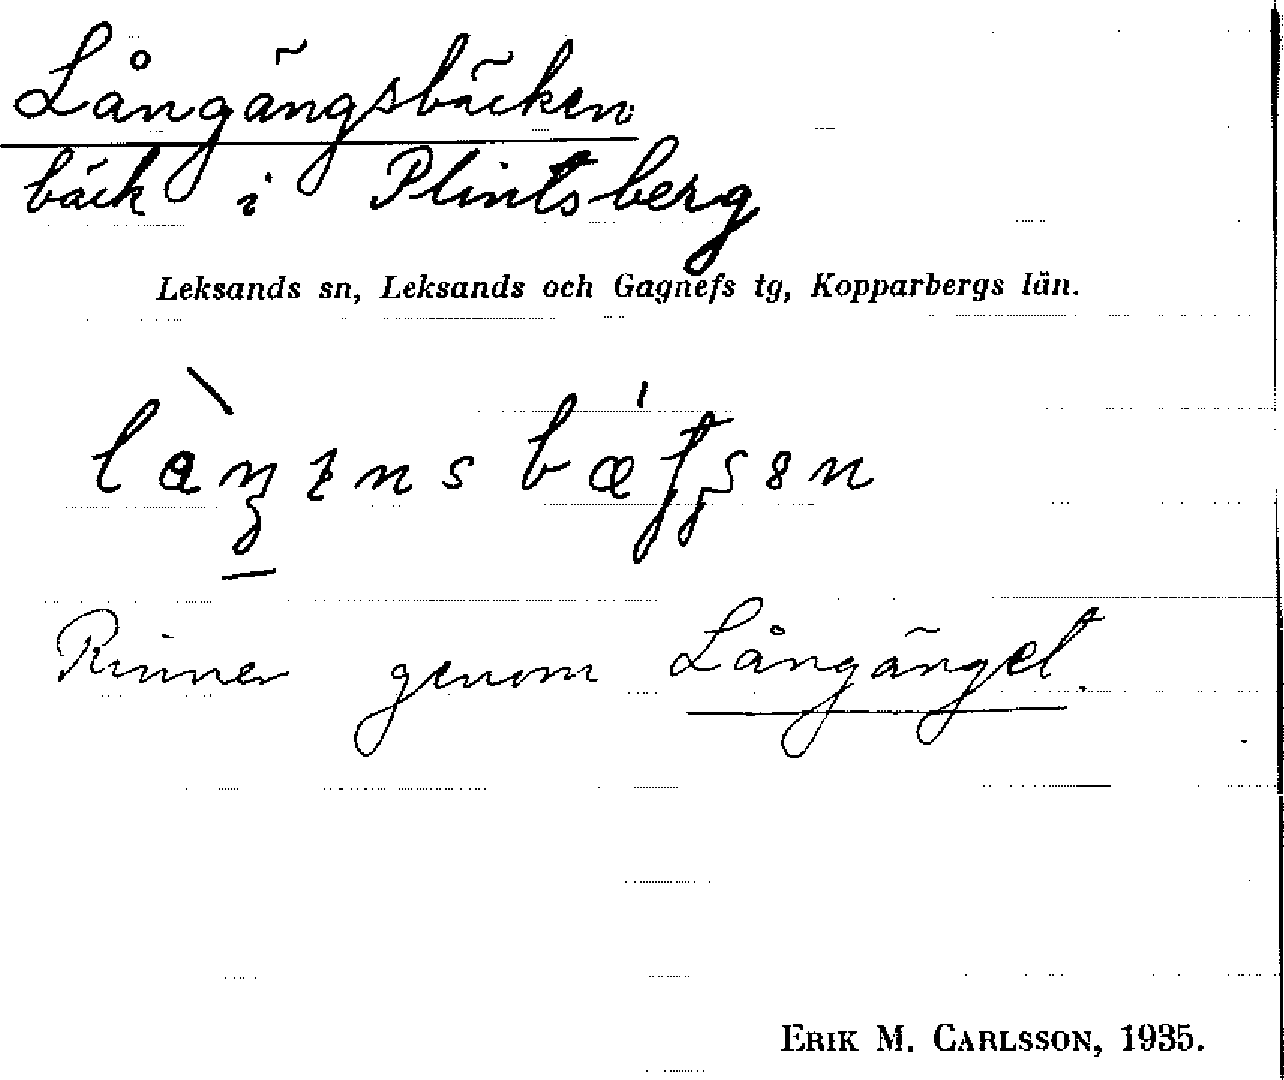 Långängsbäcken
bäck i Plintsberg
Leksands sn, Leksands och Gagnefs tg, Kopparbergs län.
Rinner genom Långänget.
ERIK M. CARLSSON, 1935.